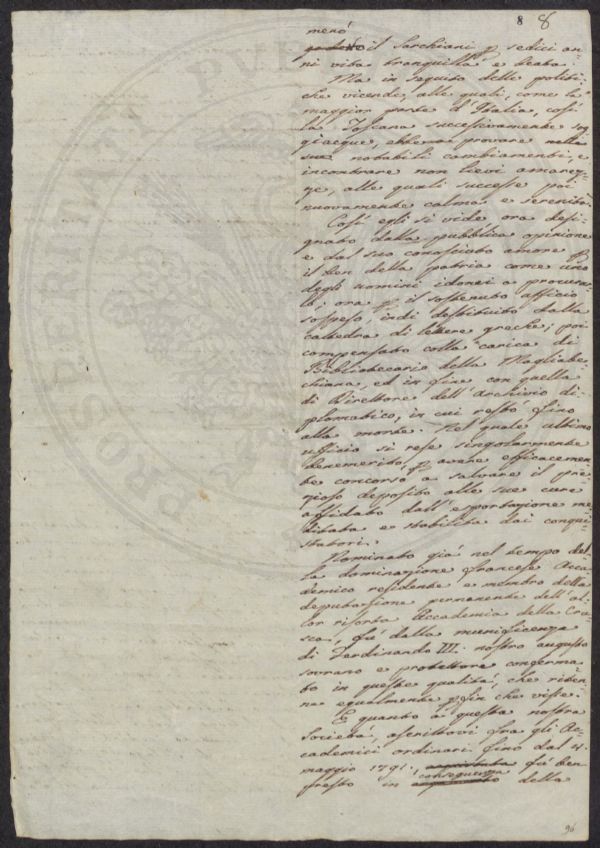 8 8
menò
il Sarchiani p sedici an-
ni vita tranquilla e beata.
Ma in seguito delle politi-
che vicende, alle quali, come la
maggior parte d'Italia, così
la Toscana successivamente sog-
giacque, ebbene provare nella
sue notabili cambiamenti, e
incontrare non lievi amarez-
ze, alle quali successe poi
nuovamente calma e serenità.
Così egli si vide ora desi-
gnato dalla pubblica opinione
e dal suo conosciuto amore p
il ben della patria come uno
degli uomini idonei a procurar-
lo; ora p il sostenuto afficio
sospeso, indi destituito dalla
catedra di lettere greche; poi
compensato colla carica di
Bibliotecario della Magliabe-
chiana, ed in fine con quella
di Direttore dell'Archivio di-
plomatico, in cui restò fino
alla morte. Nel quale ultimo
uffizio si rese singolarmente
benemerito p avere efficacemen-
te concorso a salvare il pre-
zioso deposito alle sue cure
affidato dall'esportazione me-
ditata e stabilita dai conqui-
statori.
Nominato già nel tempo del-
la dominazione francese Acca-
demico residente e membro della
deputazione permanente dell'al-
lor risorta Accademia della Cru-
sca, fu dalla munificenza
di Ferdinando III. nostro augusto
sovrano e protettore conferma-
to in queste qualità, che riten-
ne egualmente p fin che visse.
E quanto a questa nostra
Società, ascrittovi fra gli Ac-
cademici ordinari fino dal 4.
maggio 1791. fu ben
conseguenza
presto in della
96
PRO PUBLICA